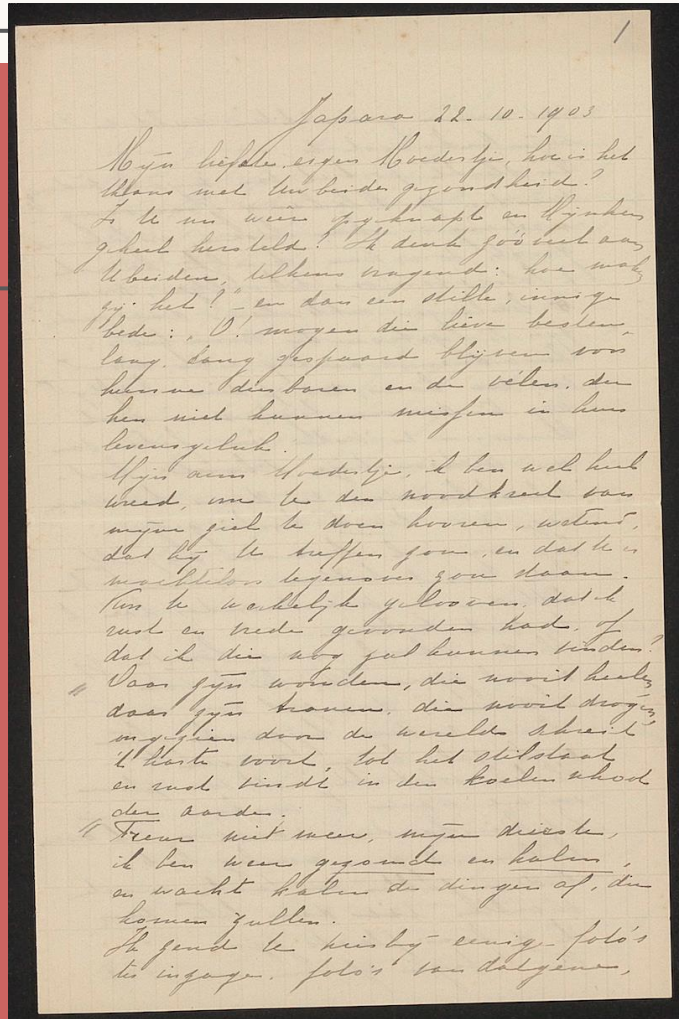 1
Japara 22-10-1903
Mijn liefste eigen Moedertje, hoe is het
thans met Uw beider gezondheid?
Is U nu weêr opgeknapt en Mijnheer
geheel hersteld? Ik denk zóó veel aan
U beiden, telkens vragend: "hoe maken
zij het?" en dan een stille, innige
bede: "O! mogen die lieve besten
lang, lang gespaard blijven voor
hunne dierbaren en de vélen, die
hen niet kunnen missen in hun
levensgeluk.
Mijn arm Moedertje, ik ben wel heel
wreed, om U den noodkreet van
mijne ziel te doen hooren, wetend,
dat hij U treffen zou, en dat U er
machteloos tegenover zou staan.
Kon U werkelijk gelooven, dat ik
rust en vrede gevonden had, of
dat ik die nog zal kunnen vinden?
" Daar zijn wonden, die nooit heelen,
daar zijn tranen, die nooit drogen,
ongezien door de wereld schreit
't harte voort, tot het stilstaat
en rust vindt in den koelen schoot
der aarde.
" Treur niet meer, mijn dierste,
ik ben weer gezond en kalm,
en wacht kalm de dingen af, die
komen zullen.
Ik zend U hierbij eenige foto's
ter inzage. foto's van datgene,